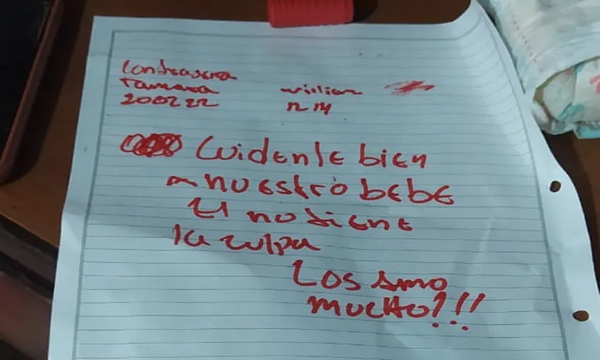 Contraseña
Tamara
200222
willian
n 14
Cuidenle bien
a nuestro bebe
El no tiene
la culpa
Los amo
mucho!!!